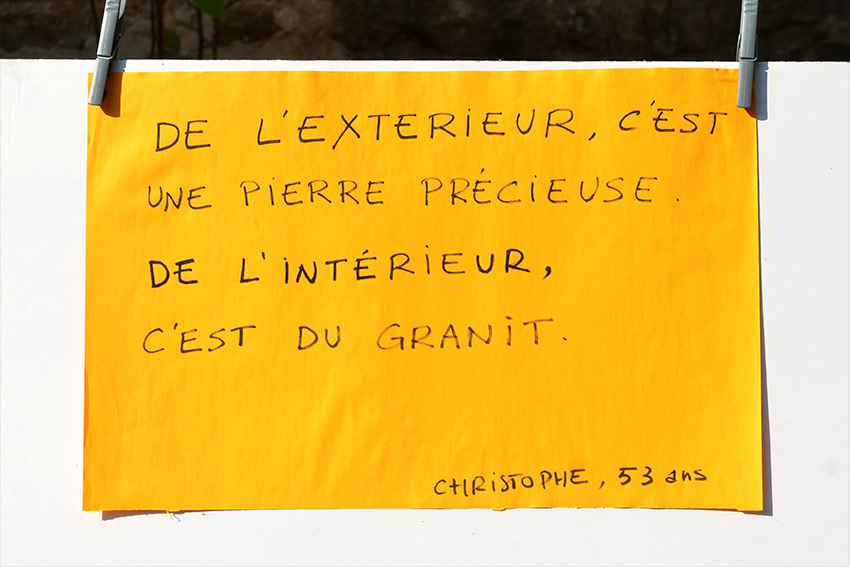 DE L'EXTERIEUR, C'EST
UNE PIERRE PRÉCIEUSE.
DE L'INTÉRIEUR,
C'EST DU GRANIT.
CHRISTOPHE, 53 ans